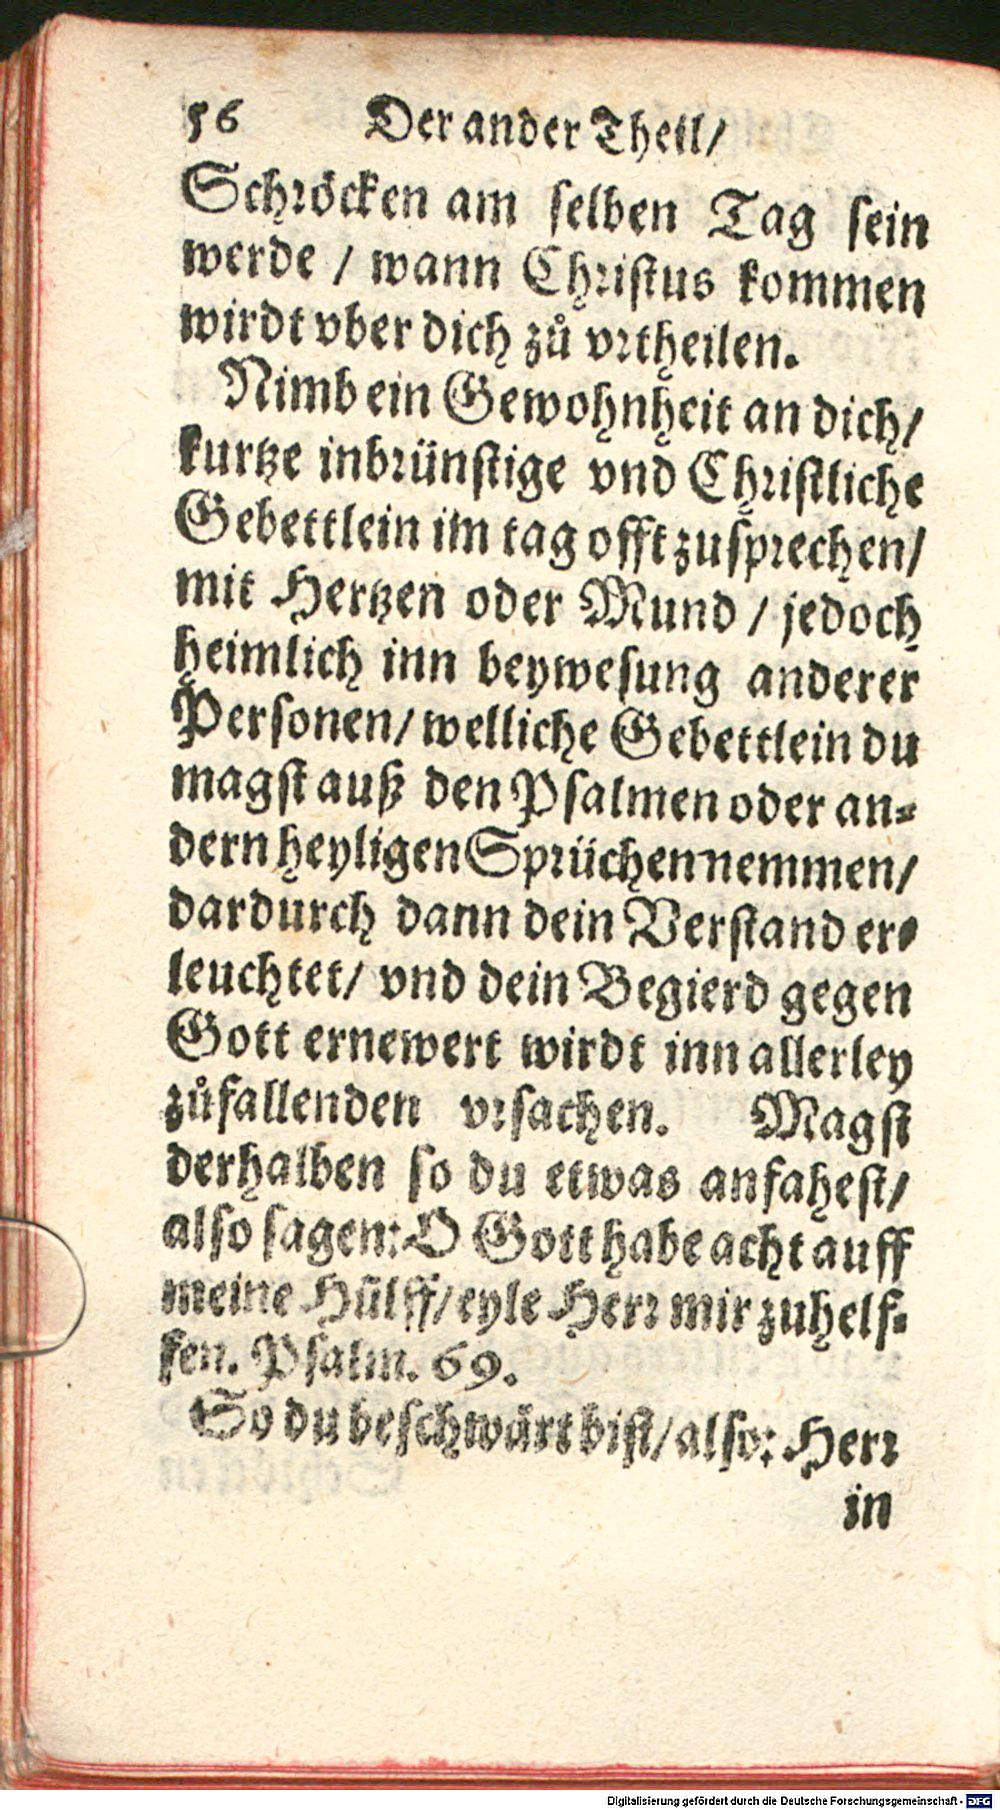 56 Der ander Theil/
Schröcken am selben Tag sein
werde / wann Christus kommen
wirdt vber dich zů vrtheilen.
Nimb ein Gewohnheit an dich/
kurtze inbrünstige vnd Christliche
Gebettlein im tag offt zusprechen/
mit Hertzen oder Mund / jedoch
heimlich inn beywesung anderer
Personen/ welliche Gebettlein du
magst auß den Psalmen oder an-
dern heyligen Sprüchen nemmen/
dardurch dann dein Verstand er-
leuchtet/ vnd dein Begierd gegen
Gott ernewert wirdt inn allerley
zůfallenden vrsachen. Magst
derhalben so du etwas anfahest/
also sagen: O Gott habe acht auff
meine Hülff/ eyle Herr mir zuhelf-
fen. Psalm. 69.
So du beschwärt bist/ also: Herr
in
Digitalisierung gefördert durch die Deutsche Forschungsgemeinschaft - DFG